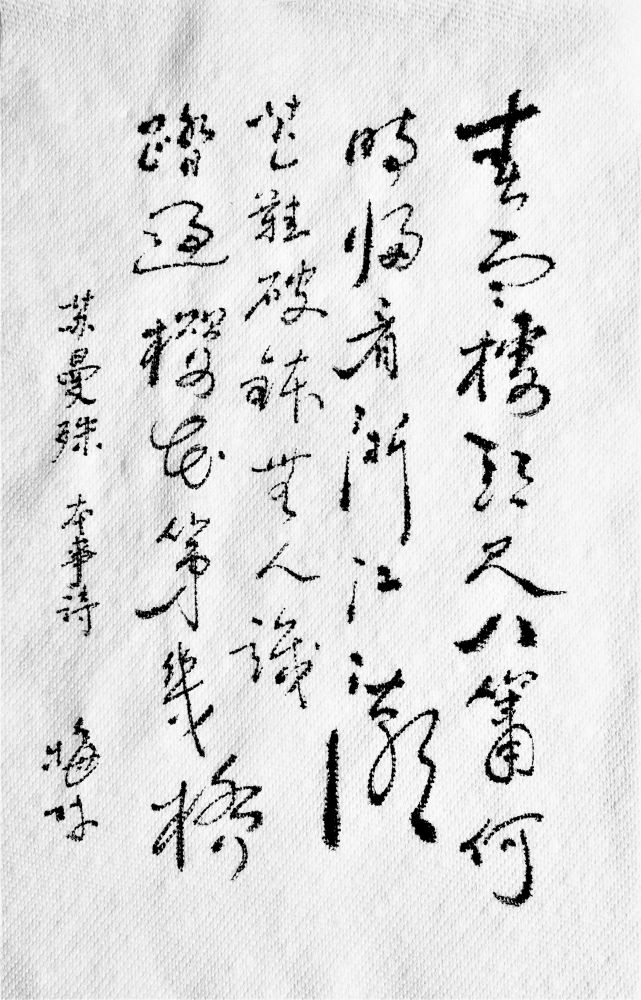 春雨樓頭尺八簫何
時歸看浙江潮
芒鞋破鉢無人識
踏過櫻花第幾橋
蘇曼殊 本事詩